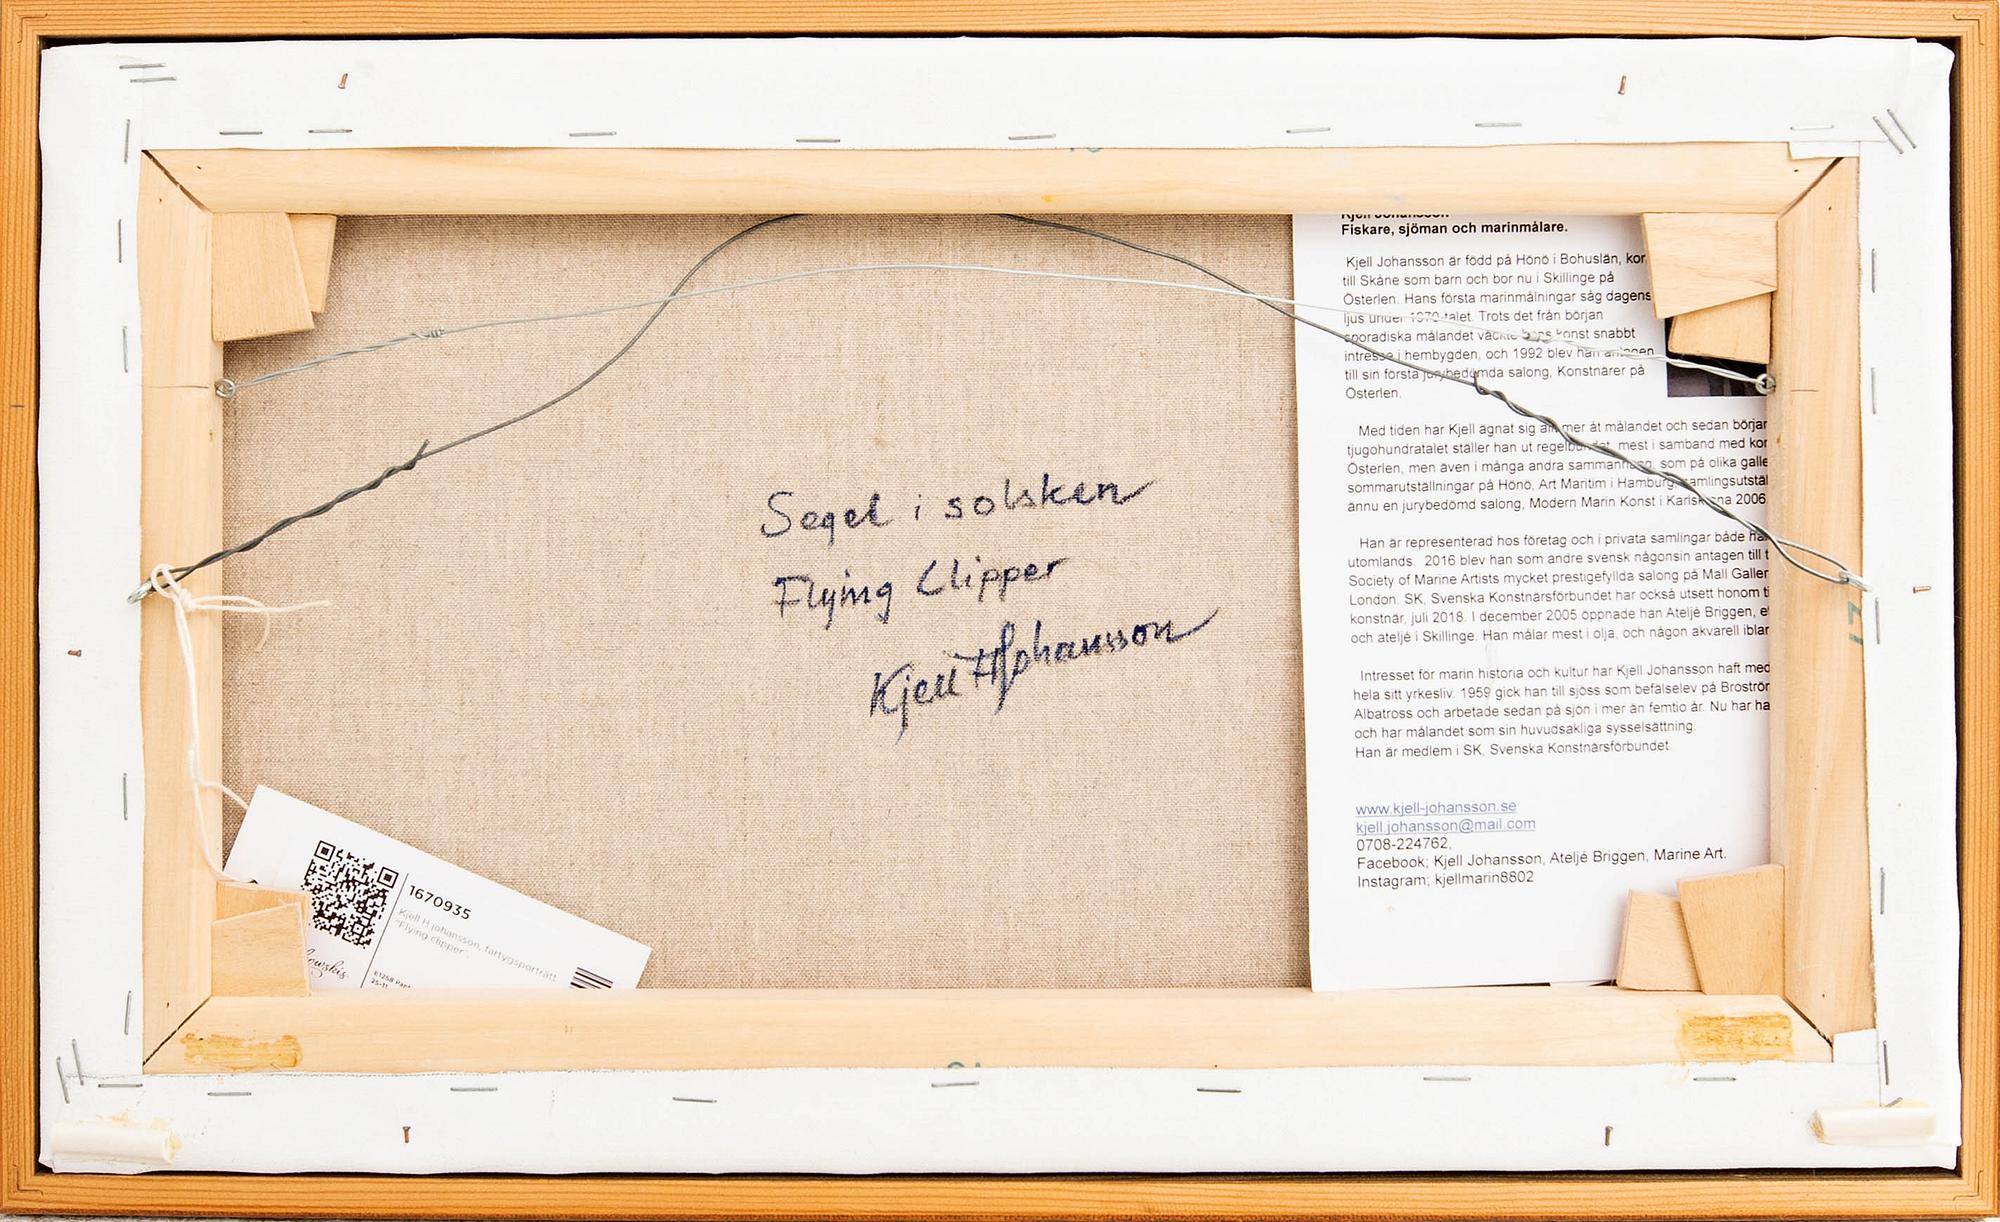 Kjell Johansson
Fiskare, sjöman och marinmålare.
Kjell Johansson är född på Hönö i Bohuslän, kom
till Skåne som barn och bor nu i Skillinge på
Österlen. Hans första marinmålningar såg dagens
ljus under 1970-talet. Trots det från början
sporadiska målandet väckte hans konst snabbt
intresse i hembygden, och 1992 blev han antagen
till sin första jurybedömda salong, Konstnärer på
Österlen.
Med tiden har Kjell ägnat sig allt mer åt målandet och sedan början
tjugohundratalet ställer han ut regelbundet, mest i samband med kon
Österlen, men även i många andra sammanhang, som på olika galle
sommarutställningar på Hönö, Art Maritim i Hamburg, samlingsutstäl
ännu en jurybedömd salong, Modern Marin Konst i Karlskrona 2006.
Han är representerad hos företag och i privata samlingar både här
utomlands. 2016 blev han som andre svensk någonsin antagen till t
Society of Marine Artists mycket prestigefyllda salong på Mall Galler
London. SK, Svenska Konstnärsförbundet har också utsett honom ti
konstnär, juli 2018. I december 2005 öppnade han Ateljé Briggen, et
och ateljé i Skillinge. Han målar mest i olja, och någon akvarell iblan
Intresset för marin historia och kultur har Kjell Johansson haft med
hela sitt yrkesliv. 1959 gick han till sjöss som befälselev på Broströn
Albatross och arbetade sedan på sjön i mer än femtio år. Nu har ha
och har målandet som sin huvudsakliga sysselsättning.
Han är medlem i SK, Svenska Konstnärsförbundet.
www.kjell-johansson.se
kjell.johansson@mail.com
0708-224762,
Facebook; Kjell Johansson, Ateljé Briggen, Marine Art.
Instagram; kjellmarin8802
Segel i solsken
Flying Clipper
Kjell H Johansson
1670935
Kjell H johansson, fartygsporträtt
"Flying clipper".
owskis
61258 Par
25-11